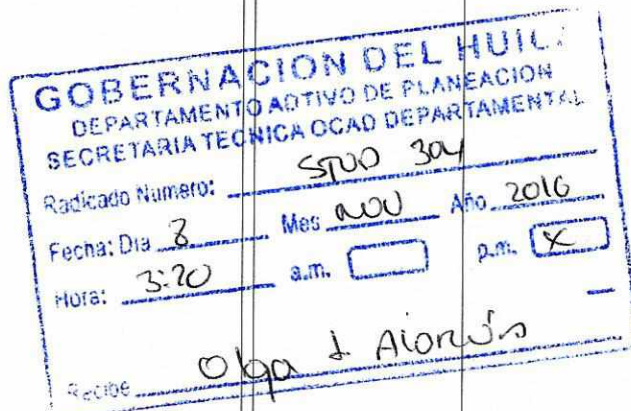 GOBERNACION DEL HUIL
DEPARTAMENTO ADTIVO DE PLANEACION
SECRETARIA TECNICA OCAD DEPARTAMENTAL
Radicado Numero: STUD 304
Fecha: Dia 8 Mes NOV Año 2016
Hora: 3:20 a.m. p.m. X
Recibe Olga